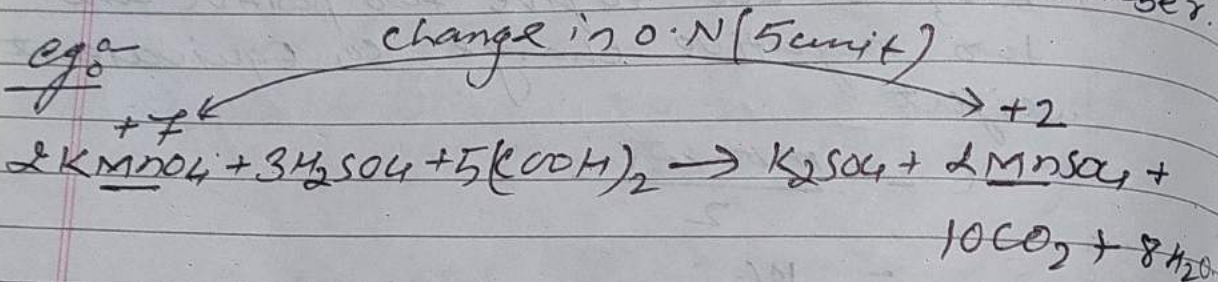 ser.
eg:- change in O.N (5 unit)
+7 +2
2KMnO4 + 3H2SO4 + 5(COOH)2 → K2SO4 + 2MnSO4 +
10CO2 + 8H2O